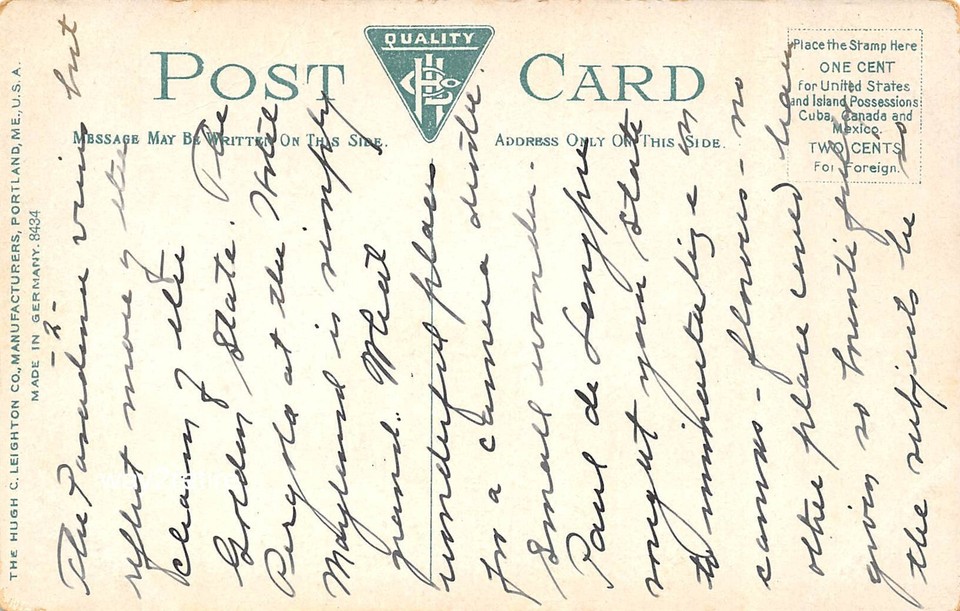 QUALITY
H C L Co
POST CARD
MESSAGE MAY BE WRITTEN ON THIS SIDE.
ADDRESS ONLY ON THIS SIDE.
Place the Stamp Here
ONE CENT
for United States
and Island Possessions
Cuba, Canada and
Mexico.
TWO CENTS
For Foreign.
THE HUGH C. LEIGHTON CO., MANUFACTURERS, PORTLAND, ME., U.S.A.
MADE IN GERMANY. 8434
-2-
The Pasadena views but
reflect more of the
charm of the
Golden State. The
Pergola at the Hotel
Maryland is simply
grand.. What
wonderful places
for a camera artist.
Small wonder.
Paul de Longpre
sought your state
to immortalize on
canvas - flowers - no
other place could have
given so bounti
the subjects he so